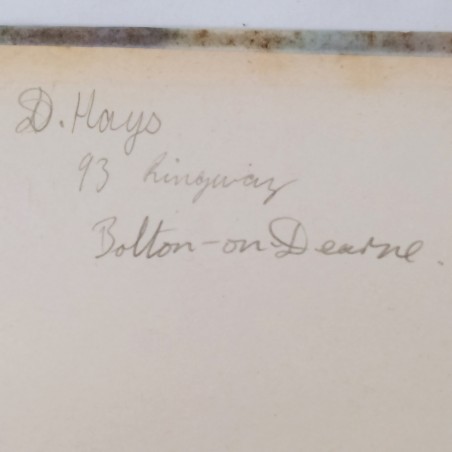 D. Hays
93 Ringway
Bolton-on-Dearne.